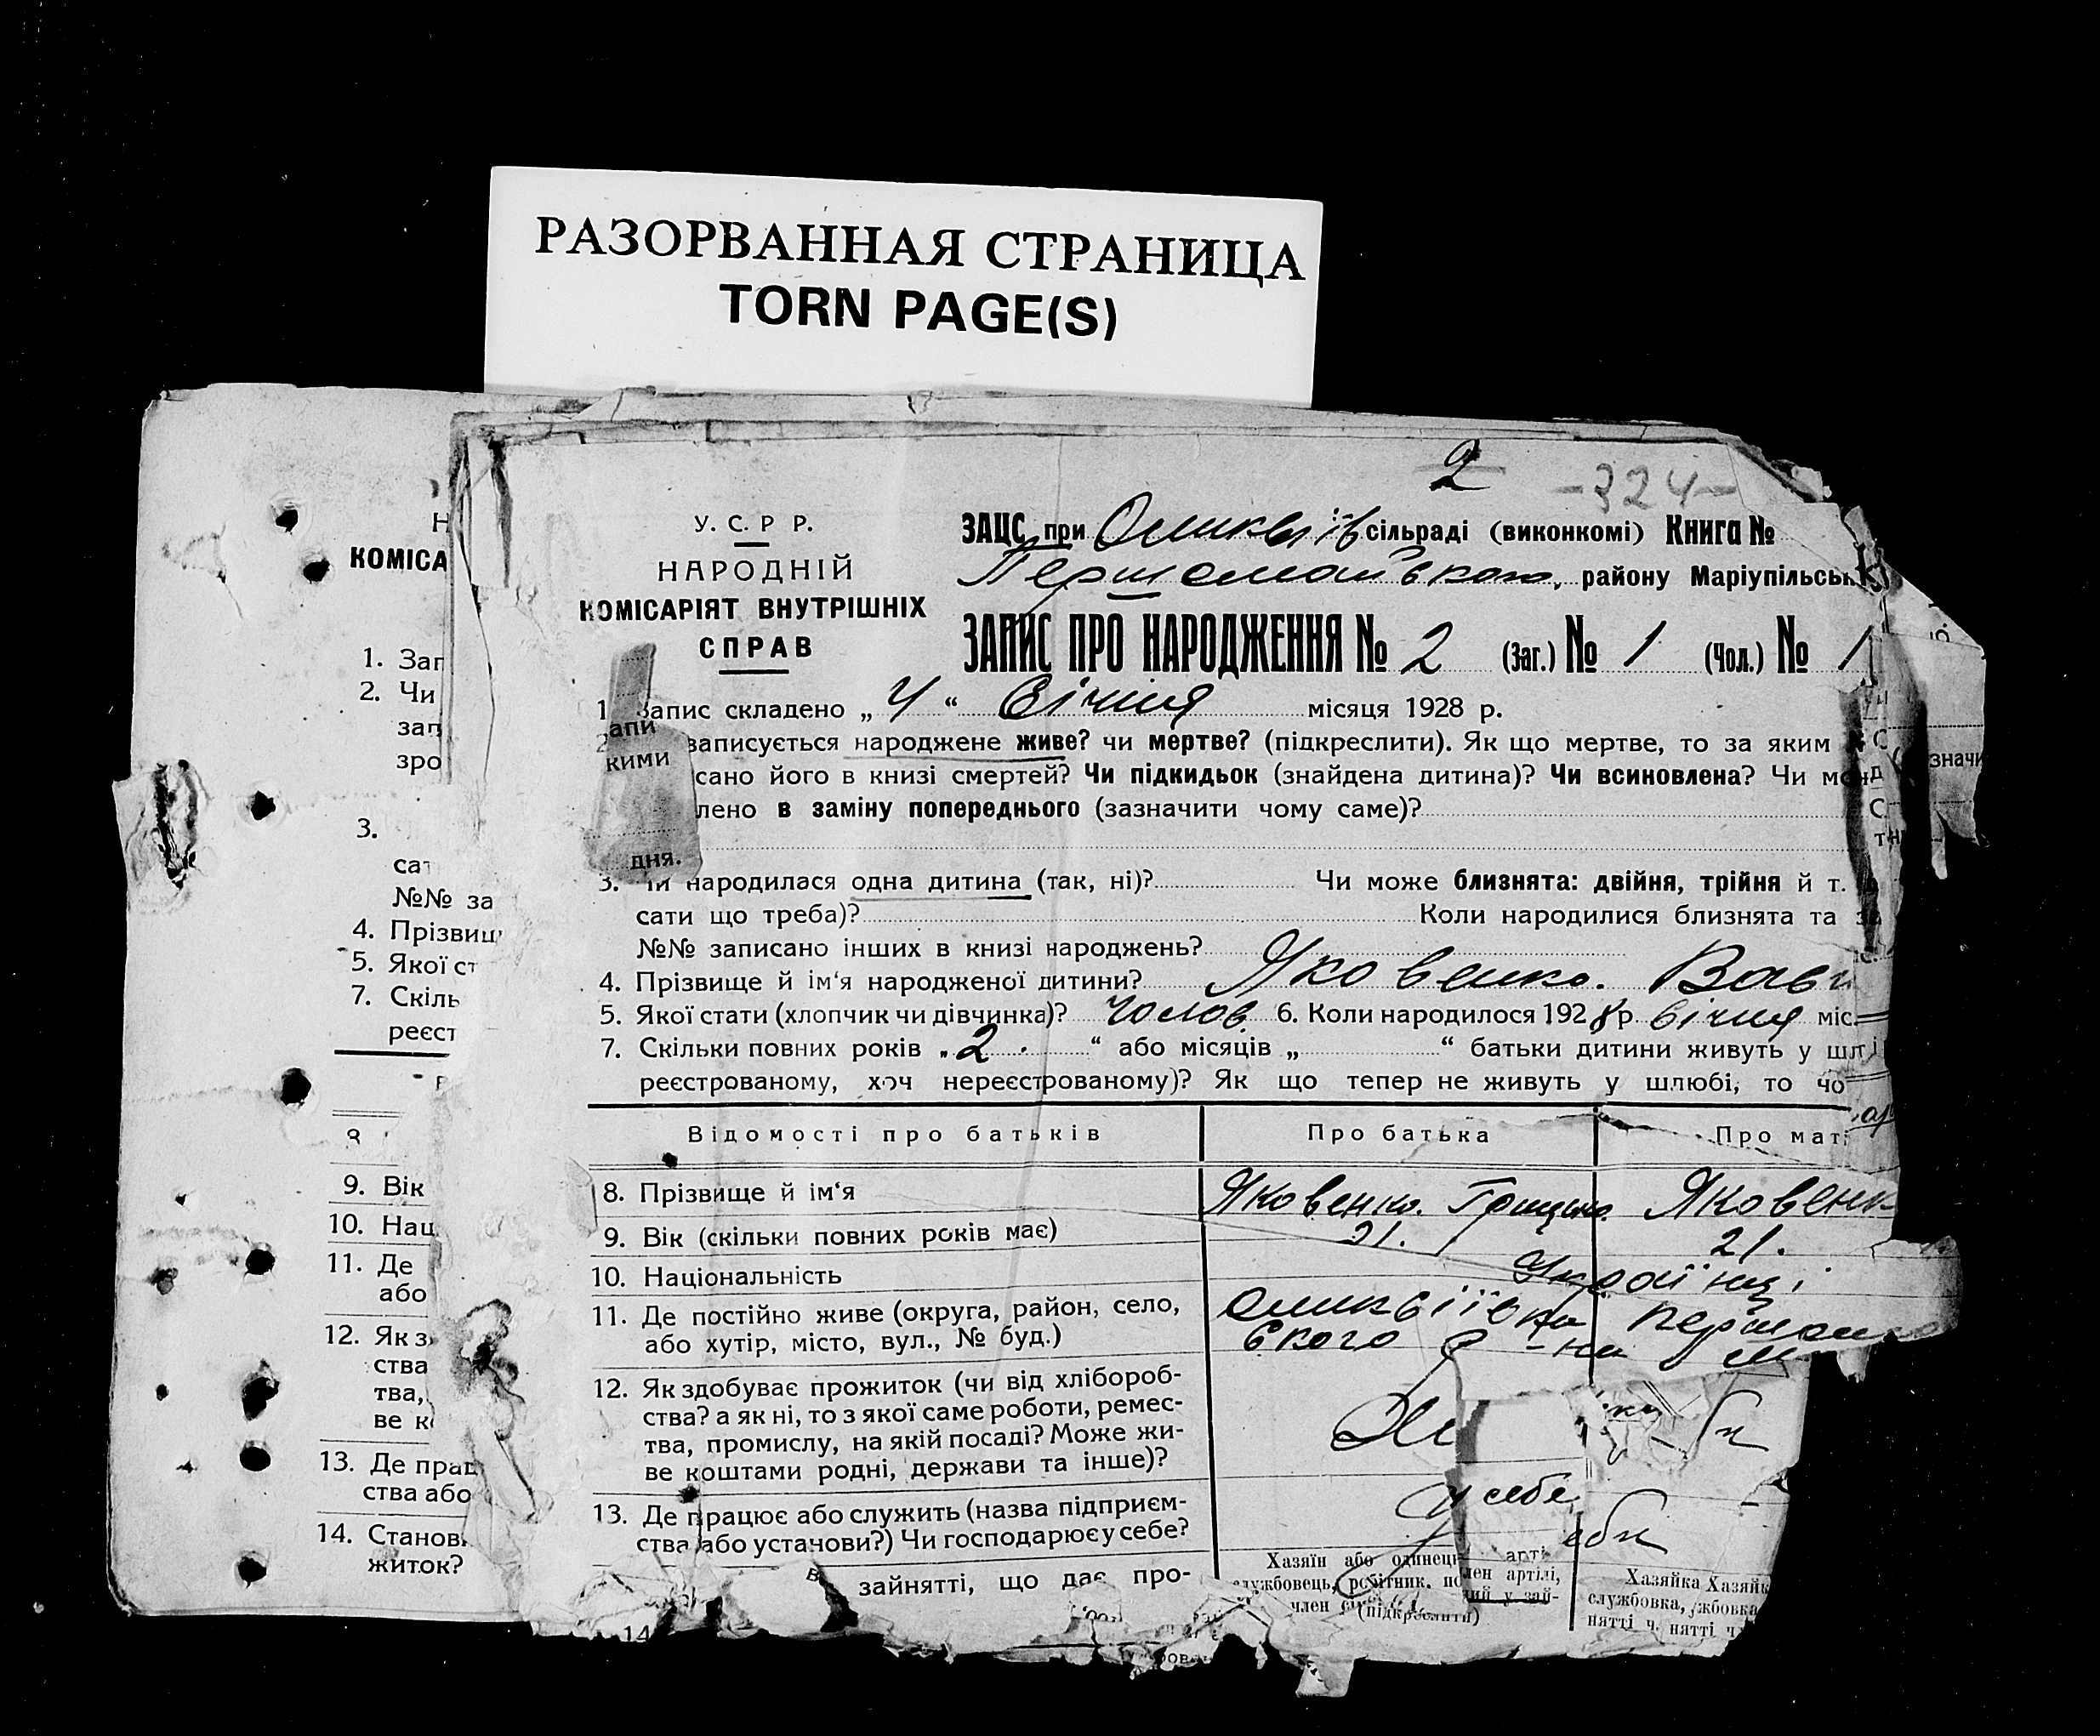 РАЗОРВАННАЯ СТРАНИЦА
TORN PAGE(S)
2 -324-
У. С. Р Р.
НАРОДНІЙ
КОМІСАРІЯТ ВНУТРІШНІХ
СПРАВ
ЗАЦС при сільраді (виконкомі) Книга №
Першомайського, району Маріупільськ
ЗАПИС ПРО НАРОДЖЕННЯ № 2 (Заг.) № 1 (Чол.) № 1
1 Запис складено „ 4 “ Січня місяця 1928 р.
апи
записується народжене живе? чи мертве? (підкреслити). Як що мертве, то за яким
кими
сано його в книзі смертей? Чи підкидьок (знайдена дитина)? Чи всиновлена? Чи
лено в заміну попереднього (зазначити чому саме)?
дня.
3. Чи народилася одна дитина (так, ні)? Чи може близнята: двійня, трійня й т.
сати що треба)? Коли народилися близнята та
№№ записано інших в книзі народжень?
4. Прізвище й ім‘я народженої дитини? Яковенко.
5. Якої стати (хлопчик чи дівчинка)? Чолов. 6. Коли народилось 1928 р. Січня міс.
7. Скільки повних років „ 2 “ або місяців „ “ батьки дитини живуть у
реєстрованому, хоч нереєстрованому)? Як що тепер не живуть у шлюбі, то чо
Відомості про батьків Про батька Про мат
8. Прізвище й ім‘я Яковенко. Грицько. Яковенк
9. Вік (скільки повних років має) 21. 21.
10. Національність Українці
11. Де постійно живе (округа, район, село,
або хутір, місто, вул., № буд.)
ського р-на
12. Як здобуває прожиток (чи від хлібороб-
ства? а як ні, то з якої саме роботи, ремес-
тва, промислу, на якій посаді? Може жи-
ве коштами родні, держави та інше)?
13. Де працює або служить (назва підприєм-
ства або установи?) Чи господарює у себе?
у себе
ебе
зайнятті, що дає про-
Хазяїн або одинец
службовець, робітник.
член
(підкреслити)
арті
лен артілі,
ний у зай-
Хазяйка Хазяйк
службовка, жбовка
нятті ч. нятті ч
14
КОМІСА
1. Зап
2. Чи
зап
зро
3.
сат
№№ за
4. Прізвищ
5. Якої ст
7. Скіль
реєст
8
9. Вік
10. Нац
11. Де
або
12. Як з
ства
тва,
ве к
13. Де прац
ства або
14. Станов
житок?
значи